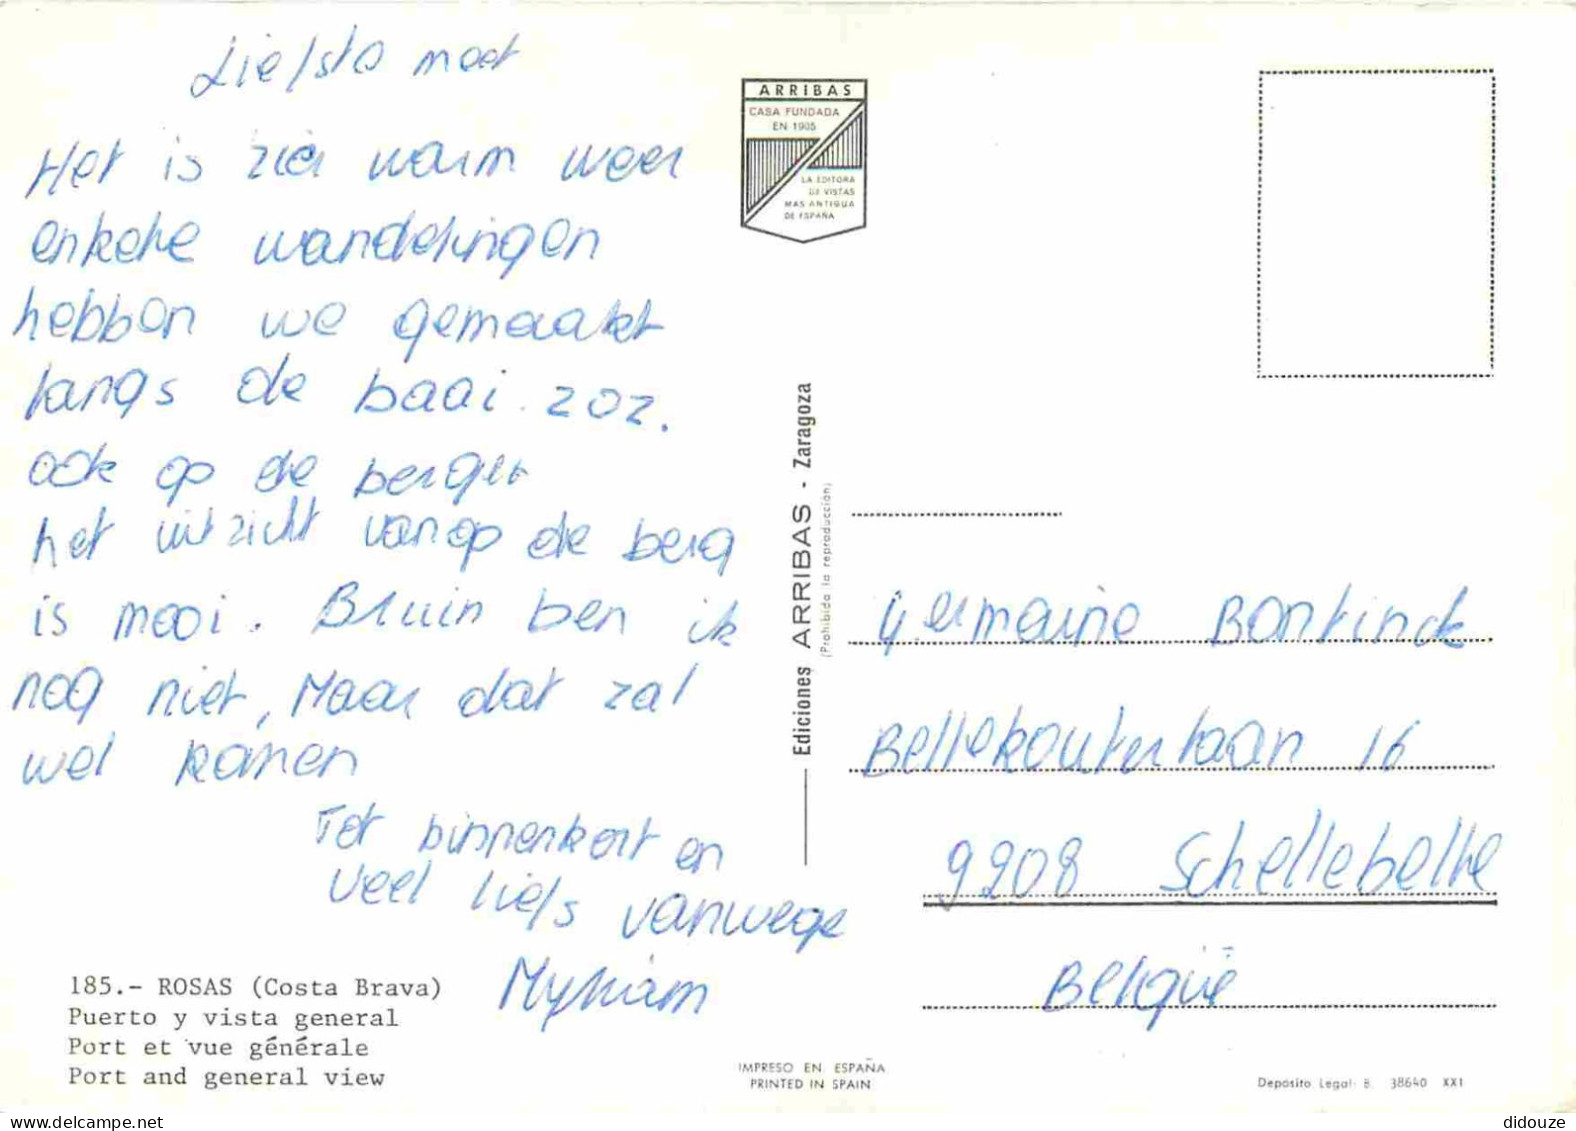 Liefste meet
Het is hier warm weer
enkele wandelingen
hebben we gemaakt
langs de baai. zoz.
ook op de bergen
het uitzicht vanop de berg
is mooi. Bruin ben ik
nog niet, Maar dat zal
wel komen
Tot binnenkort en
veel liefs vanwege
Myriam
185.- ROSAS (Costa Brava)
Puerto y vista general
Port et vue générale
Port and general view
ARRIBAS
CASA FUNDADA
EN 1905
LA EDITORA
DE VISTAS
MAS ANTIGUA
DE ESPAÑA
Ediciones ARRIBAS - Zaragoza
(Prohibida la reproducción)
IMPRESO EN ESPAÑA
PRINTED IN SPAIN
Germaine Bontinck
Bellekouterlaan 16
9208 Schellebelle
België
Depósito Legal: B. 38640 XXI
didouze